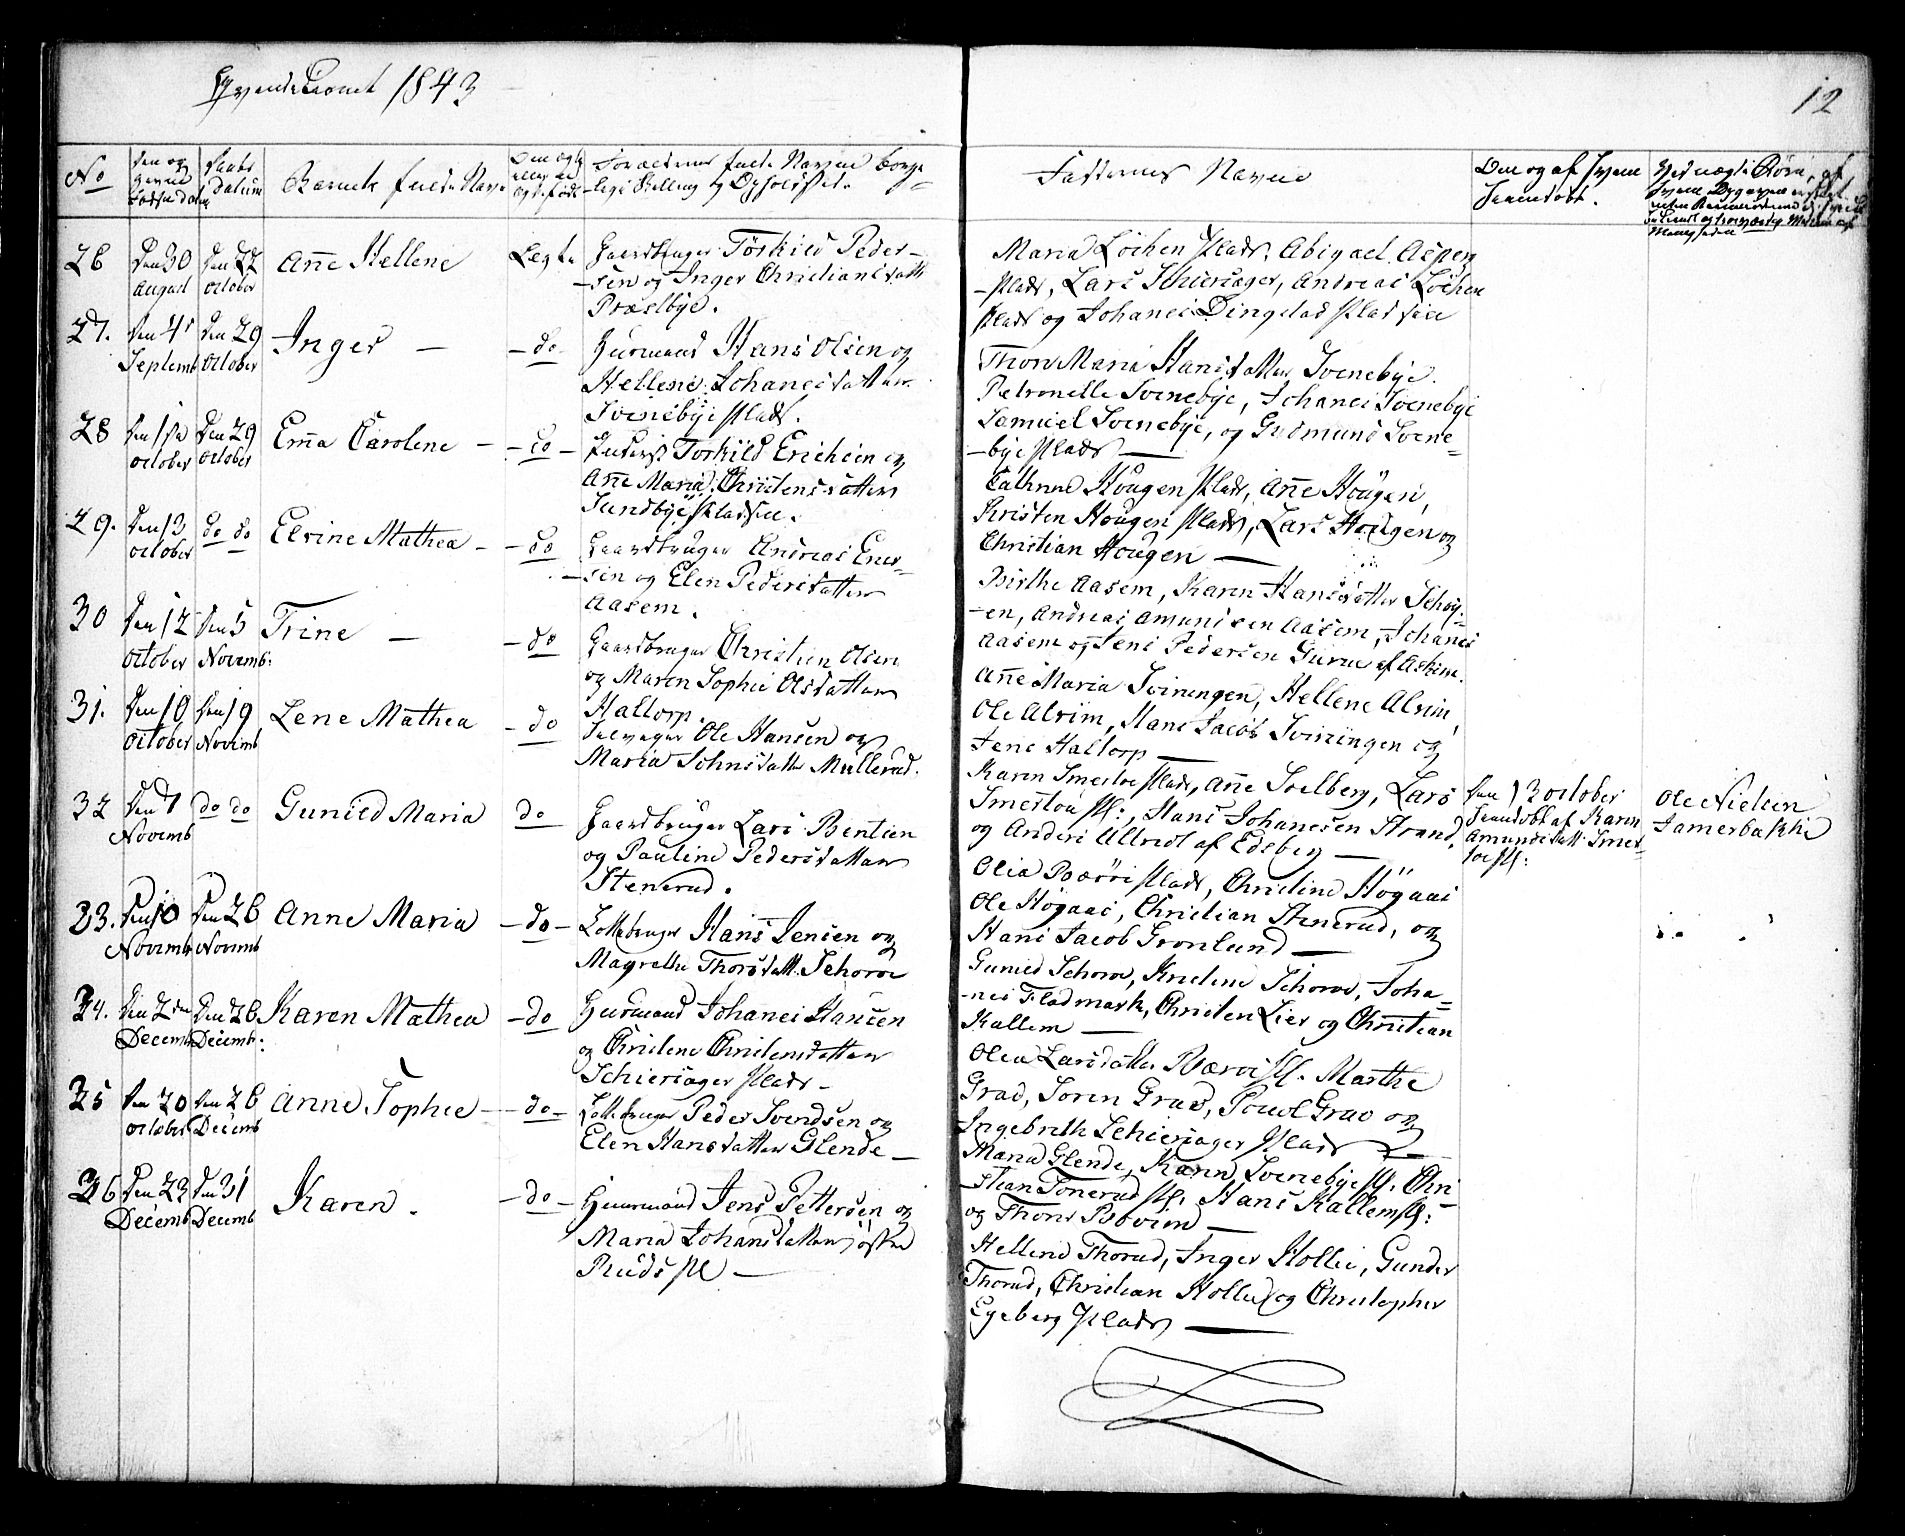 Qvendekiønnet 1843
12
No
Den og
hvad
Barnets fulde Navn
Forældrenes fulde Navne Borger-
lige Stilling og Opholdsted.
Faddernes Navne
Den og af hvem
hjemdøbt.
26
Den 30
August
Den 22
October
Anne Hellene
Ægte
Gaardbruger Torkild Peder-
sen og Inger Christiansdatter
Præstbye.
Maria Løchen Plads, Abigael Aspen
-plads, Lars Schiersager, Andreas Løchen
plads og Johanes Dingstad pladsen
27.
Den 4
Septemb
Den 29
October
Inger —
— do
Huusmand Hans Olsen og
Hellene Johanesdatter
Svenebye plads.
Thore Maria Hansdatter Svenebye.
Petronelle Svenebye, Johanes Svenebye
Samuel Svenebye, og Gudmund Svene-
-bye Plads —
28
Den 1ste
October
Den 29
October
Emma Carolene —
— do —
Torkild Erichsen og
Anne Maria Christensdatter
Sundbye Pladsen.
Cathrine Hougen Plads, Anne Hougen,
Kristen Hougen Plads, Lars Hougen og
Christian Hougen —
29.
Den 13
October
do do
Elvine Mathea —
— do
Gaardbruger Andreas Ener-
-sen og Elen Pedersdatter
Aasem.
Birthe Aasem, Karen Hansdatter Schøy-
-en, Andreas Amundsen Aasem, Johanes
Aasem og Jens Pedersen Guren af Askim.
30
Den 12
October
Den 5
Novemb:
Trine —
— do
Gaardbruger Christian Olsen
og Maren Sophie Olsdatter
Haltorp.
Anne Maria Sviningen, Hellene Alvim,
Ole Alvim, Hans Jacob Sviningen og
Jens Haltorp —
31.
Den 10
October
Den 19
Novemb
Lene Mathea
— do
Selveger Ole Hansen og
Maria Johnsdatter Mullerud.
Karen Smestoe plads, Anne Solberg, Lars
Smestoe pl:, Hans Johanesen Strand,
og Anders Ullerud af Edsberg —
Den 13 October
hjemdøbt af Karen
Amundsdatt. Smes-
toe pl:
Ole Nielsen
Jamerbakke
32
Den 7
Novemb
do do
Gunild Maria
do
Gaardbruger Lars Bentsen
og Pauline Pedersdatter
Stenerud.
Olia Børve plads, Christine Høgaas
Ole Høgaas, Christian Stenerud, og
Hans Jacob Grønlund —
33.
Den 10
Novemb
Den 26
Novemb
Anne Maria
— do —
Lottebruger Hans Jensen og
Magrethe Thorsdatt. Schorve
Gunild Schorve, Kristine Schorve, Joha-
-nes Fladmark, Christen Lier og Christian
Kallem —
34.
Den 2den
Decemb
Den 26
Decemb:
Karen Mathea
— do
Huusmand Johanes Hansen
og Christine Christensdatter
Schiersager plads —
Olea Larsdatter Bærve pl. Marthe
Grav, Soren Grav, Povel Grav og
Ingebreth Schiersager Plads —
35
Den 20
October
Den 26
Decemb
Anne Sophie —
— do —
Lottebruger Peder Svendsen og
Elen Hansdatter Glende —
Maria Glende, Karen Svenebye pl. Chri-
-stian Tonerud pl. Hans Kallem pl:
og Thore Bovim —
36
Den 23
Decemb
Den 31
Decemb
Karen.
— do —
Huusmand Jens Pettersen og
Maria Johansdatter østre
Ruds pl —
Hellene Thorud, Inger Hollie, Gunder
Thorud, Christian Hollie og Christopher
Egeberg Plads —